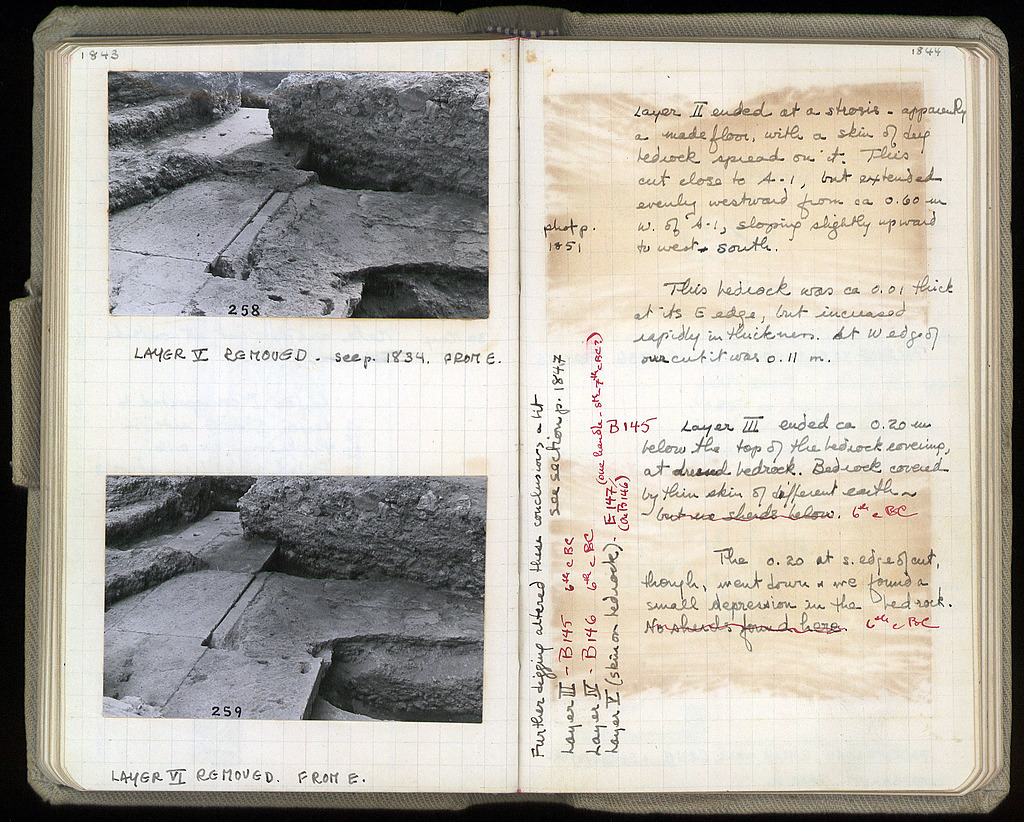 1843
258
LAYER V REMOVED - see p. 1834. FROM E.
259
LAYER VI REMOVED. FROM E.
1844
Layer II ended at a strosis - apparently
a made floor, with a skin of
bedrock spread on it. This
cut close to A-1, but extended
evenly westward from ca 0.60 m
W. of A-1, sloping slightly upward
to west, south.
phot p.
1851
This bedrock was ca 0.01 thick
at its E edge, but increased
rapidly in thickness. At W edge of
our cut it was 0.11 m.
B145
Layer III ended ca 0.20 m
below the top of the bedrock covering,
at bedrock. Bedrock covered
by thin skin of different earth -
- but no sherds below. 6th c BC
The 0.20 at s. edge of cut,
though, went down & we found a
small depression in the bedrock.
No sherds found here. 6th c BC
Further digging altered these conclusions, a bit
see section p. 1847
Layer III - B145 6th c BC
Layer IV - B146 6th c BC
Layer V (skin on bedrock) - E147 (one handle - 8th-7th c BC?)
(or B146)